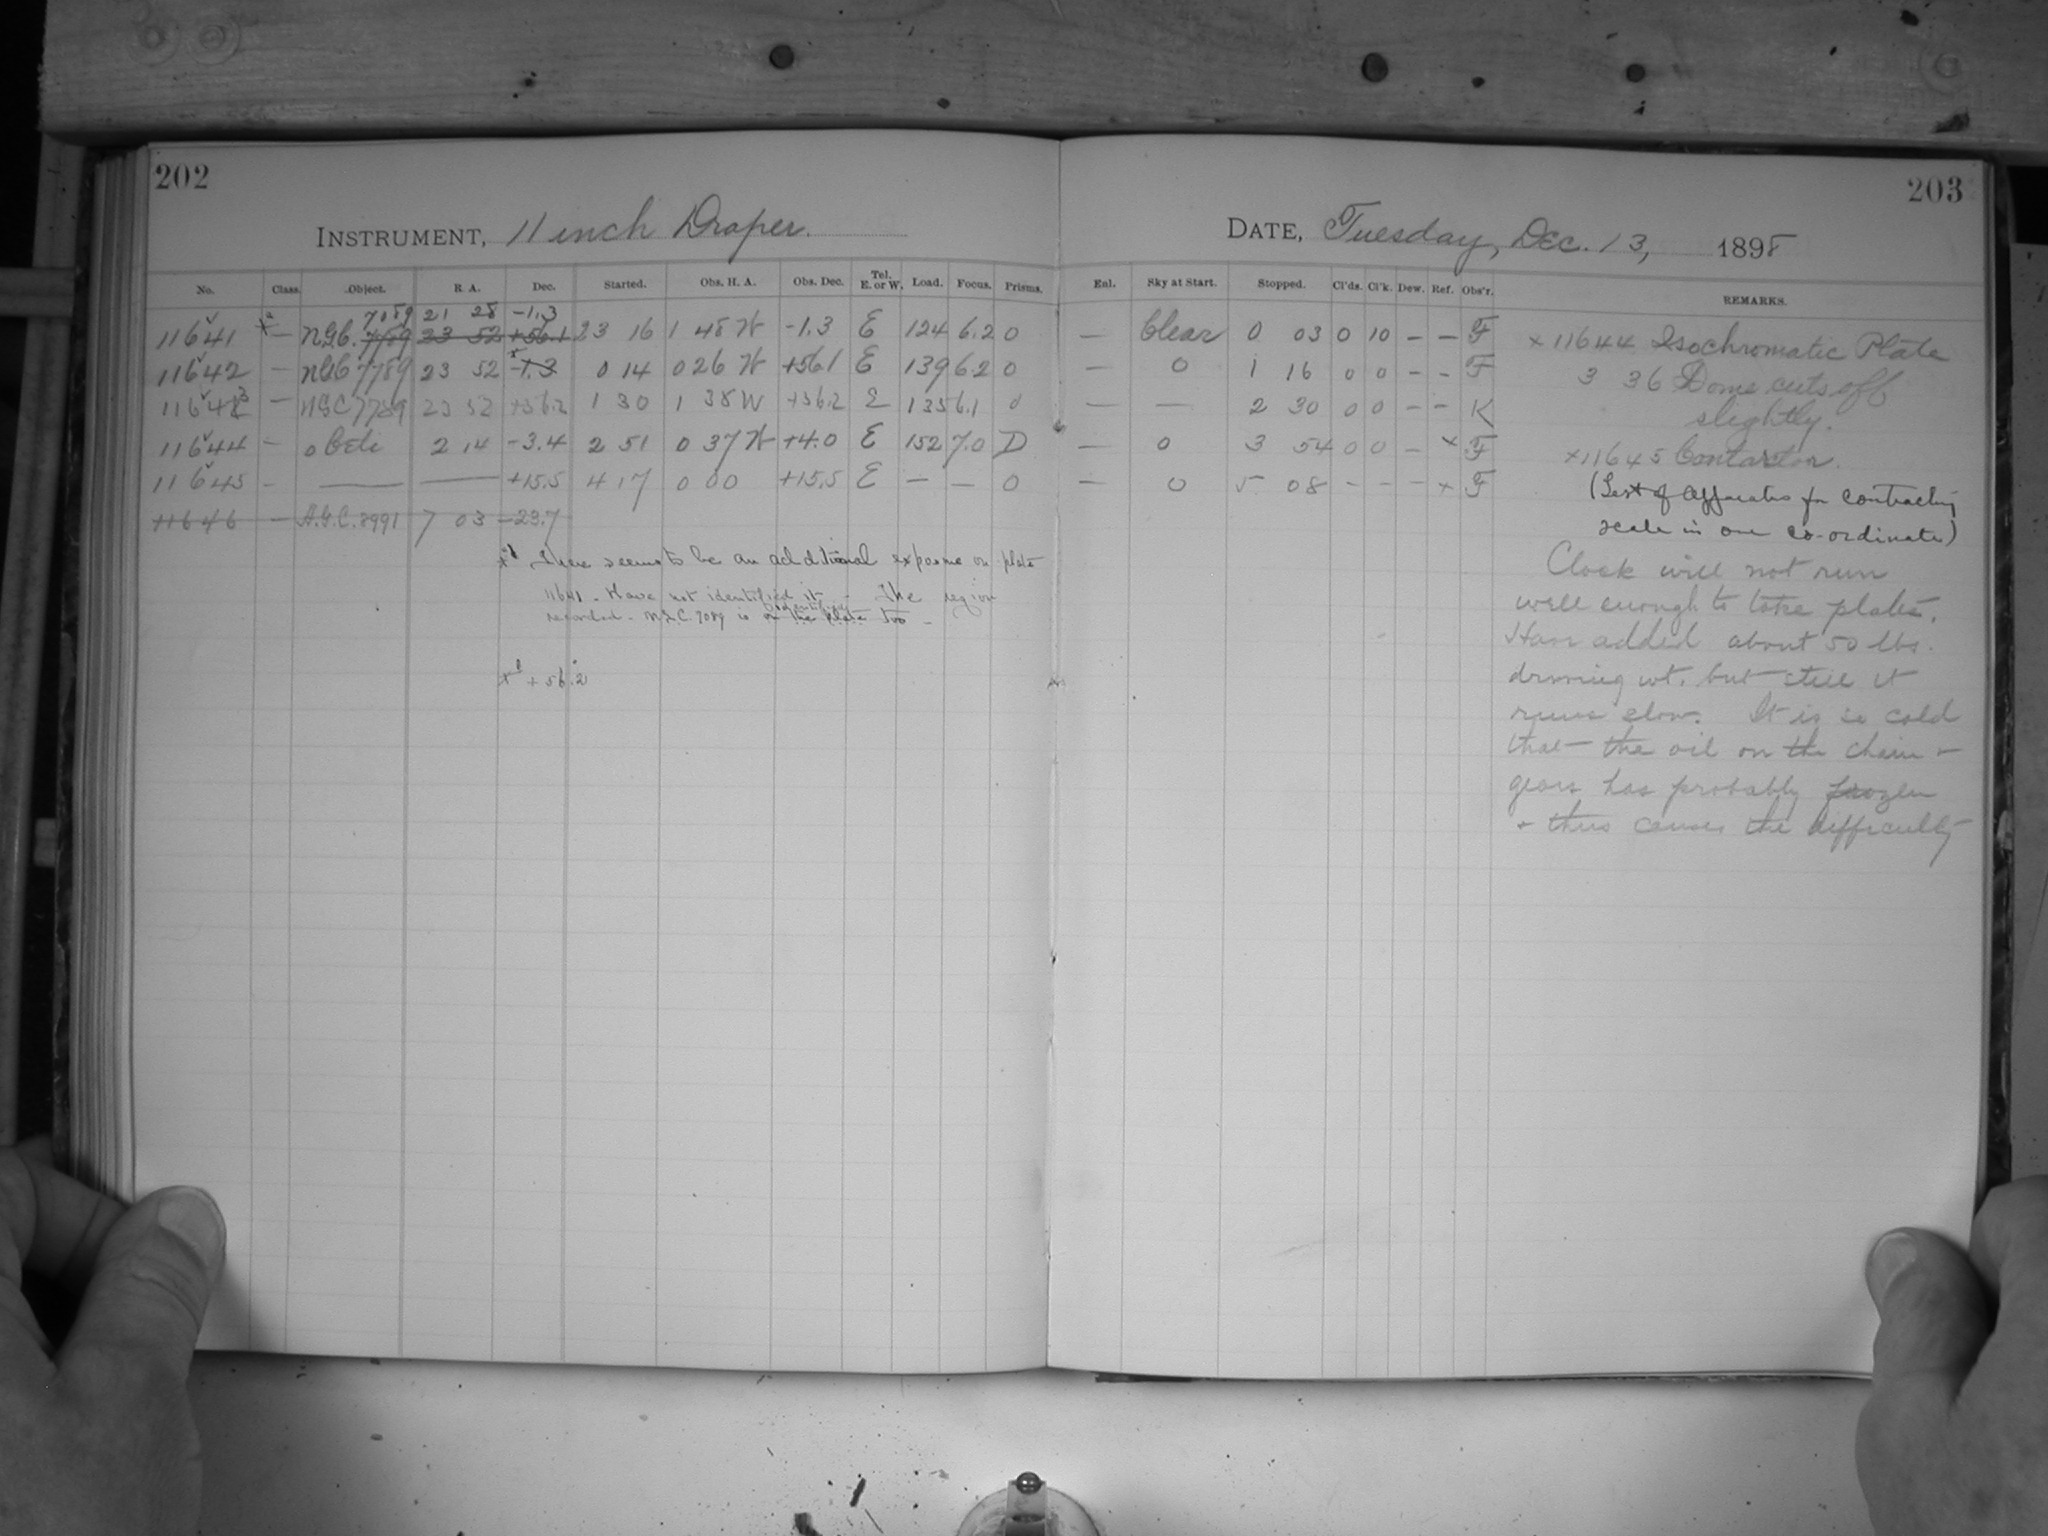 202
203
INSTRUMENT, 11 inch Draper.
DATE, Tuesday, Dec. 13, 1898
No. Class. Object. R. A. Dec. Started. Obs. H. A. Obs. Dec. Tel. E. or W. Load. Focus. Prisms. Enl. Sky at Start. Stopped. Cl'ds. Cl'k. Dew. Ref. Obs'r. REMARKS.
7089 21 28 -1.3
11641 — N.G.C. 7789 23 52 +56.1 23 16 1 48 W -1.3 E 124 6.2 0 — Clear 0 03 0 10 — — F
11642 — NGC 7789 23 52 -1.3 0 14 0 26 W +56.1 E 139 6.2 0 — 0 1 16 0 0 — — F
11643 — NGC 7789 23 52 +56.2 1 30 1 38 W +56.2 E 135 6.1 0 — — 2 30 0 0 — — K
11644 — o Ceti 2 14 -3.4 2 51 0 37 W +4.0 E 152 7.0 D — 0 3 54 0 0 — x F
11645 — — — +15.5 4 17 0 00 +15.5 E — — 0 — 0 5 08 — — — x F
11646 — A.G.C. 8991 7 03 -23.7
There seems to be an additional exposure on plate
11641 - Have not identified it - The region
recorded - N.G.C. 7089 is identified on the plate too -
x + 56.2
x 11644 Isochromatic Plate
3 36 Dome cuts off
slightly.
x 11645 Contactor.
(Test of apparatus for contracting
scale in one co-ordinate)
Clock will not run
well enough to take plates.
Have added about 50 lbs.
driving wt. but still it
runs slow. It is so cold
that the oil on the chain +
gears has probably frozen
+ thus causes the difficulty